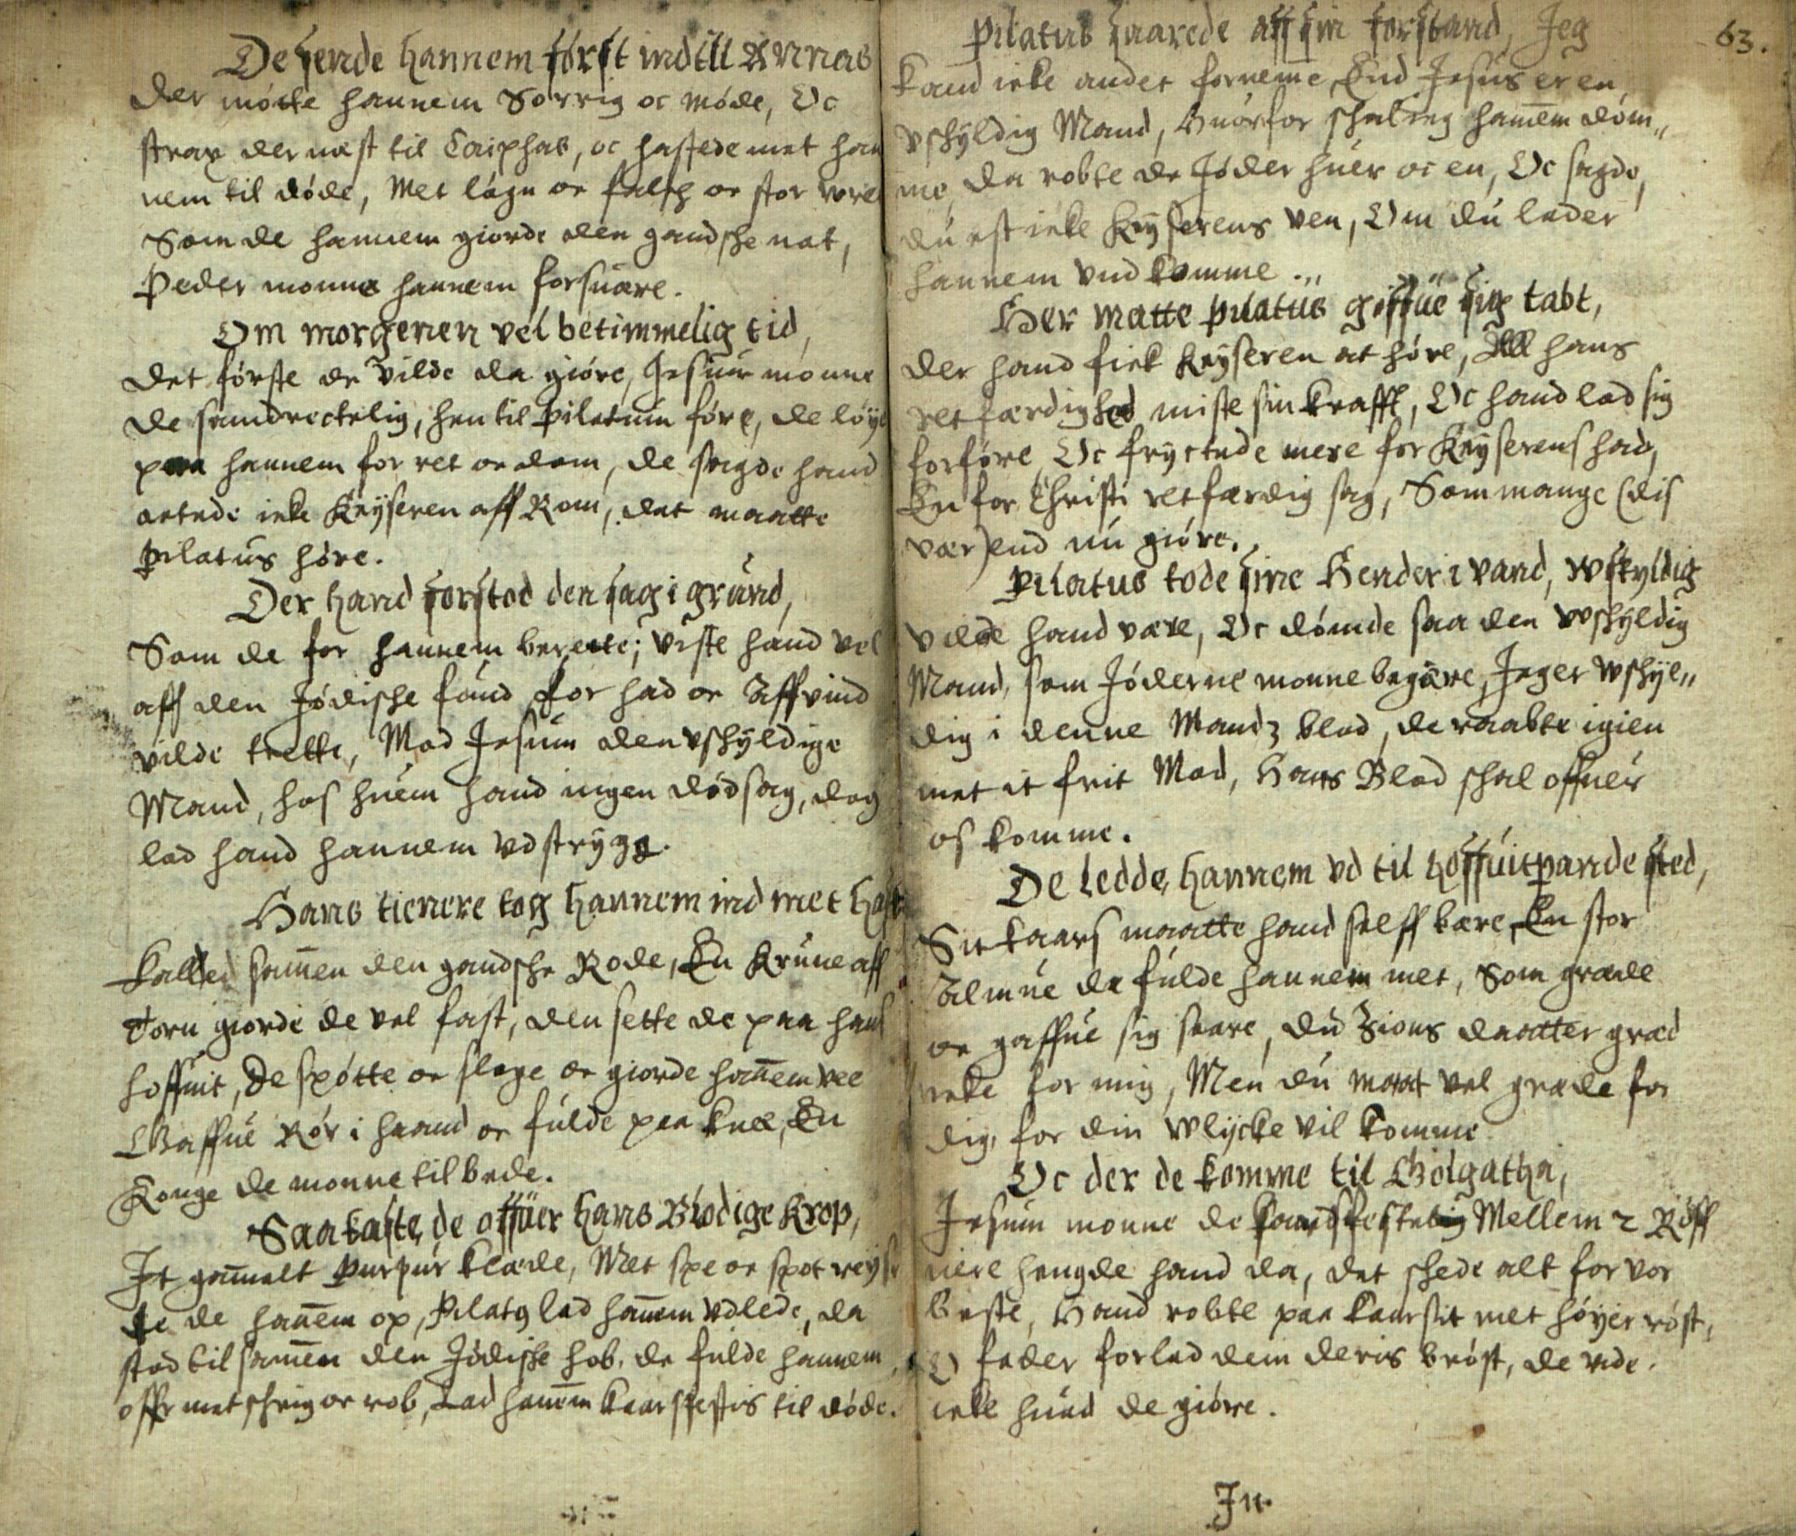 De sende hannem først ind till Annas
der møtte hannem Sorrig oc møde, Oc
strax der næst til Caiphas, oc hastede met han
nem til døde, Met løgn oc falsk oc stor vre
Som de hannem giorde den gandsche nat,
Peder monne hannem forsuære.
Om morgenen vel betimmelig tid,
det første de vilde da giøre, Jesum monne
de sandrectelig, hen til Pilatum føre, de løye
paa hannem for ret oc dom, de sagde hand
actede icke Keyseren aff Rom, det maatte
Pilatus høre.
Der hand forstod den sag i grund,
Som de for hannem berette; viste hand vel
aff den Jødische fund for had oc Affvind
vilde trette, Mod Jesum den vschyldige
Mand, hos huem hand ingen død sag, dog
lod hand hannem vdstryge.
Hans tienere tog hannem ind met hast
kalled sam̄en den gandsche Rode, En Krune aff
Torn giorde de vel fast, den sette de paa hans
hoffuit, de spøtte oc sloge oc giorde han̄em vee
Gaffue Rør i haand oc fulde paa knee, En
Konge de monne tilbede.
Saa kaste de offuer hans Blodige Krop,
Jt gam̄elt Purpur klæde, Met spe oc spot reys
te de han̄em op, Pilatus lod han̄em vdlede, da
stod til sam̄en den Jødische hob, de fulde hannem
offr met schrig oc rob, Lad han̄em kaarsfestis til døde.
63.
Pilatus suarede aff sin forstand, Jeg
kand icke andet forneme End Jesus er en
vschyldig Mand, huorfor schal ieg han̄em døm„
me, da robte de Jøder huer oc en, Oc sagde,
du est icke Keyserens ven, Om du lader
hannem vnd komme.
Her matte Pilatus giffue sig tabt,
der hand fick Keyseren at høre, All hans
retfærdighed miste sin krafft, Oc hand lod sig
forføre, Oc fryctede mere for Keyserens had,
En for Christi retfærdig sag, Som mange (dis
vær) end nu giøre.
Pilatus tode sine Hender i vand, wskyldig
vilde hand være, Oc dømde saa den wschyldig
Mand, som Jøderne monne begære, Jeg er wschyl„
dig i denne Mandz blod, de raabte igien
met it frit Mod, Hans Blod schal offuer
os komme.
De ledde hannem vd til hoffuitpande sted,
Sit kaars maatte hand self bære, En stor
Almue de fulde hannem met, Som græde
oc gaffue sig saare, du Zions daatter græd
icke for mig, Men du maat vel græde for
dig, for din wlycke vil komme
Oc der de komme til Golgatha,
Jesum monne de kaarsfeste Mellem 2 Røff
uere hengde hand da, det schede alt for vor
beste, Hand robte paa kaarsit met høyer røst,
O fader forlad dem deris brøst, de vide
icke huad de giøre.
Jn